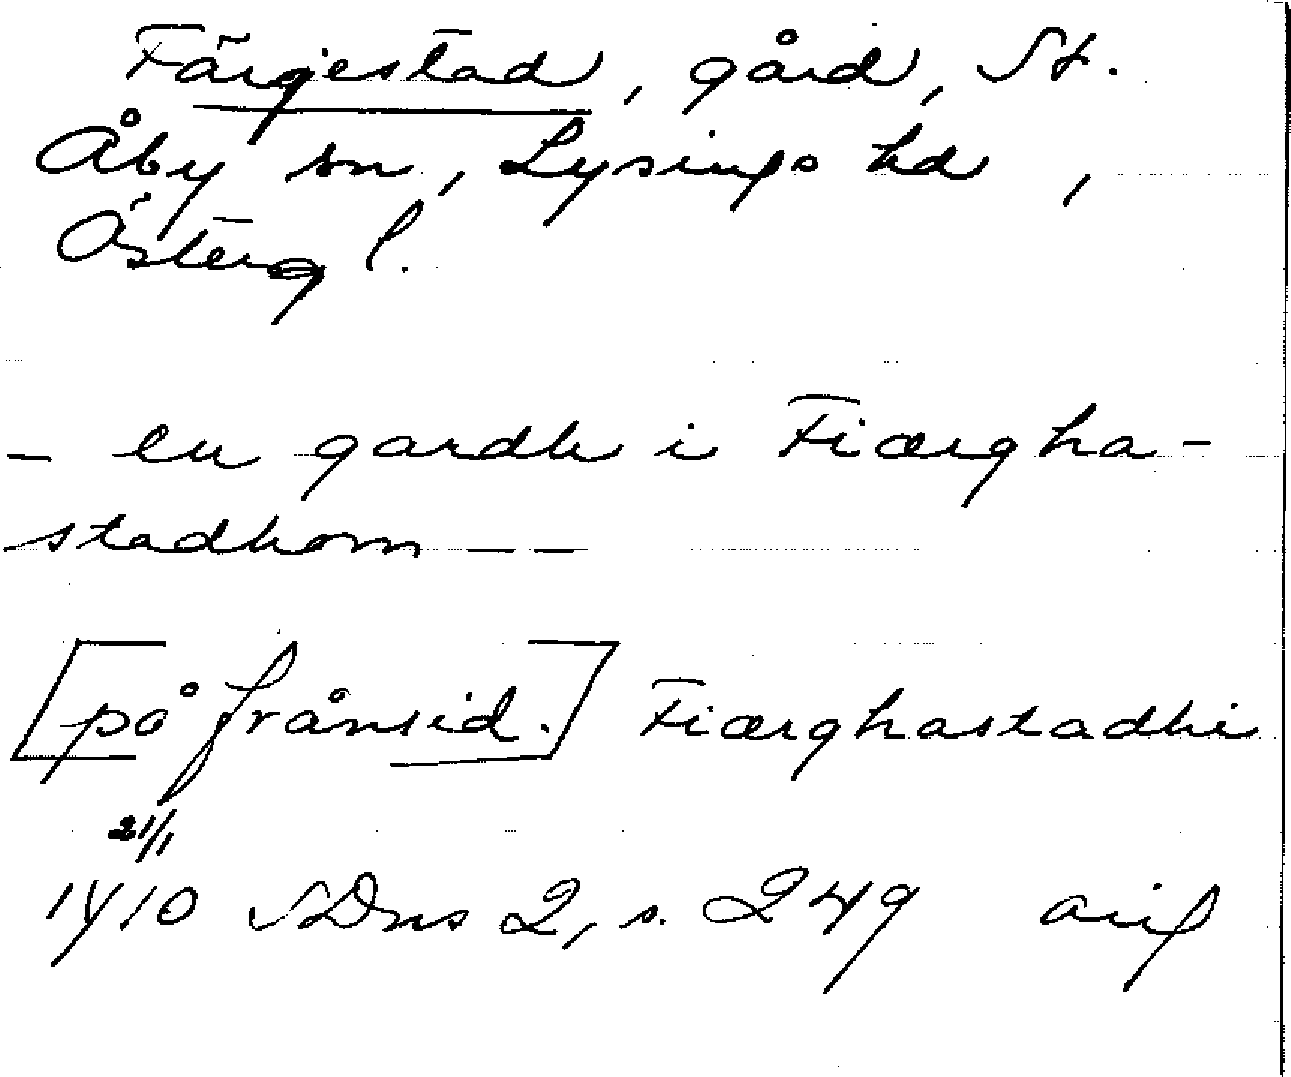 Färgestad, gård, St.
Åby sn, Lysings hd,
Östergl.
- en gardh i Fiærgha-
stadhom - -
[på frånsid.] Fiærghastadhi
21/1
1410 SDns 2, s. 249